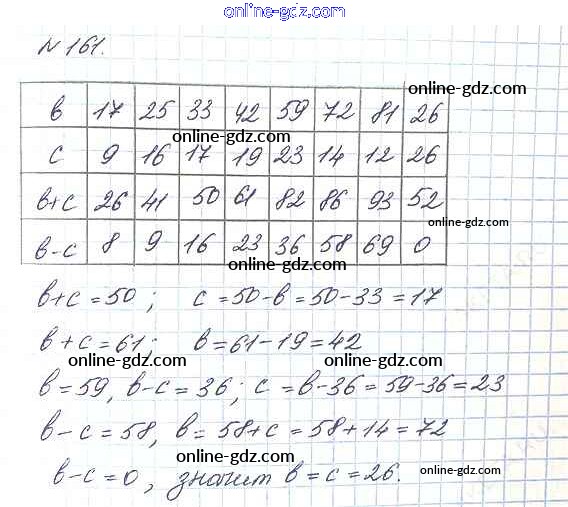 online-gdz.com
№161.
online-gdz.com
в 17 25 33 42 59 72 81 26
online-gdz.com
с 9 16 17 19 23 14 12 26
в+с 26 41 50 61 82 86 93 52
online-gdz.com
в-с 8 9 16 23 36 58 69 0
online-gdz.com
в+с=50; с=50-в=50-33=17
в+с=61; в=61-19=42
online-gdz.com online-gdz.com
в=59, в-с=36; с=в-36=59-36=23
online-gdz.com
в-с=58, в=58+с=58+14=72
online-gdz.com
в-с=0, значит в=с=26.
online-gdz.com